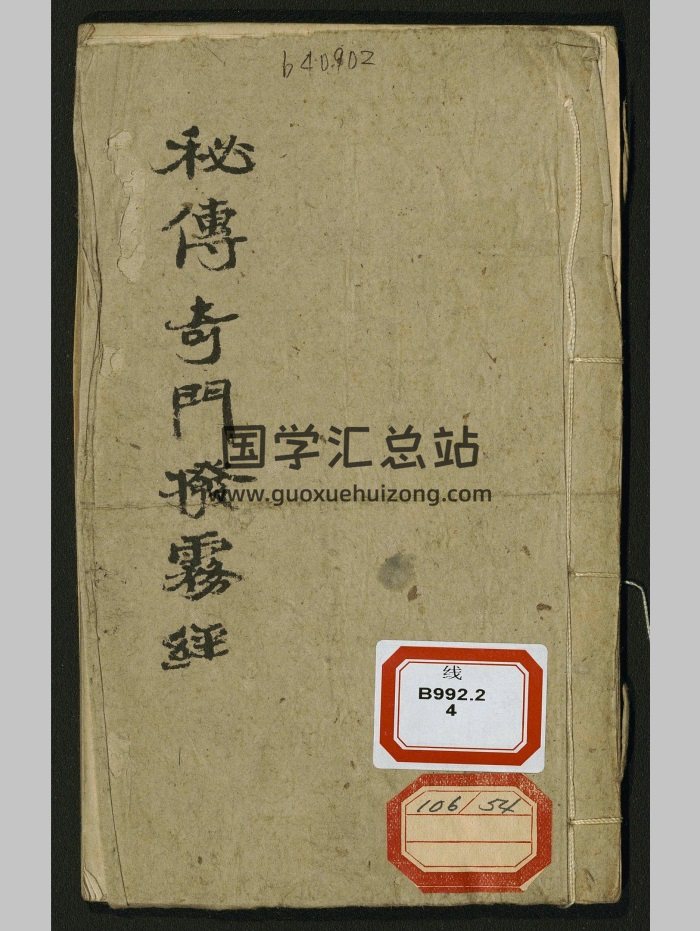 640902
秘傳奇門撥霧經
国学汇总站
www.guoxuehuizong.com
线
B992.2
4
106/54